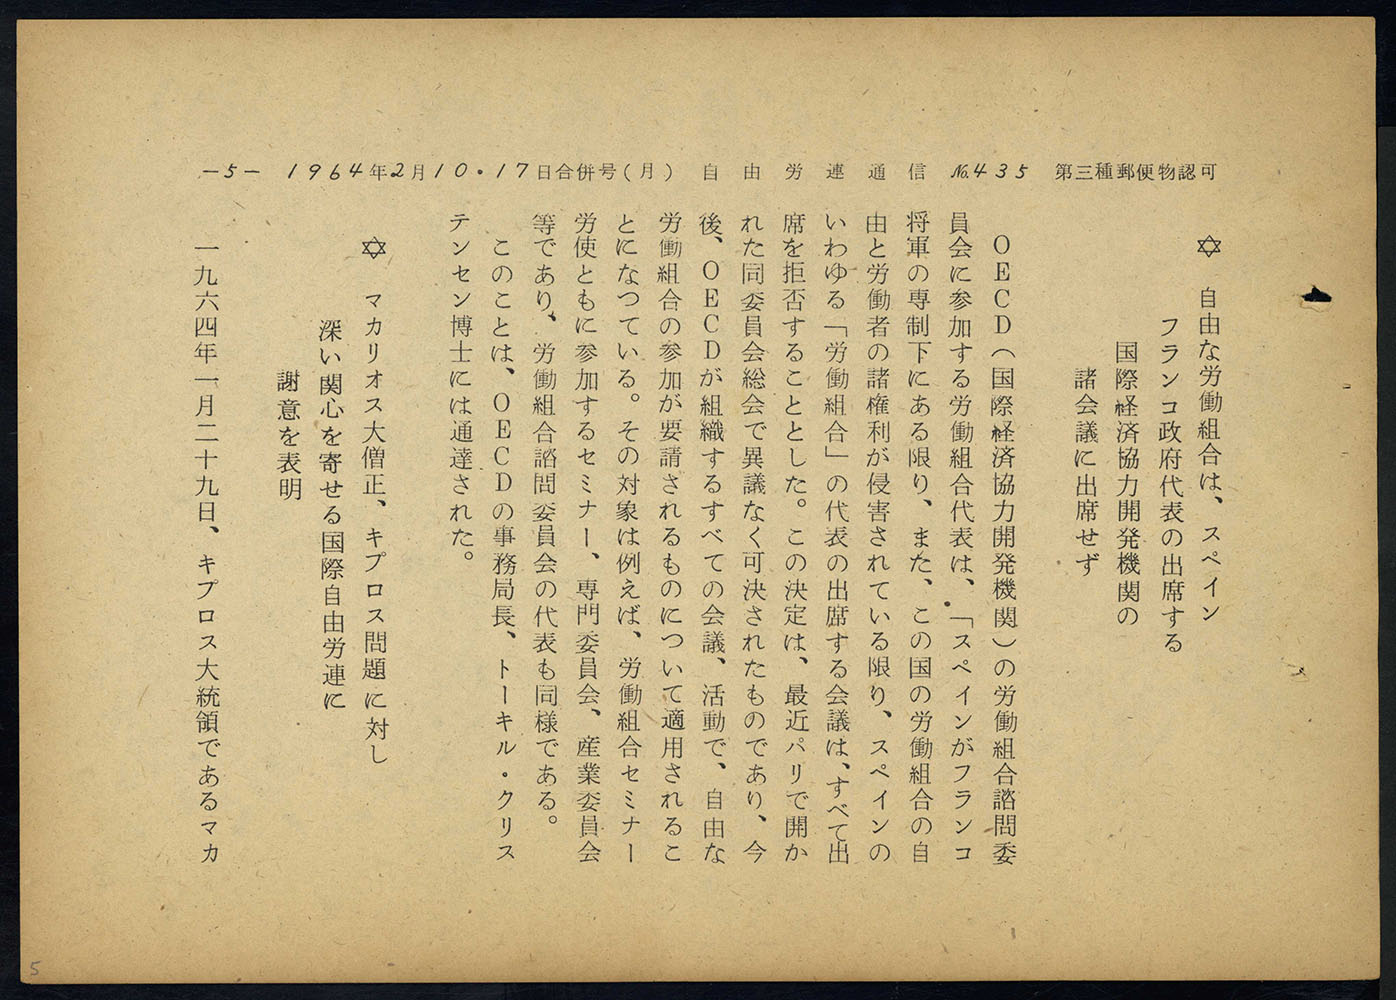 -5- 1964年2月10・17日合併号(月) 自由労連通信 No.435 第三種郵便物認可
✡ 自由な労働組合は、スペイン
フランコ政府代表の出席する
国際経済協力開発機関の
諸会議に出席せず
OECD(国際経済協力開発機関)の労働組合諮問委
員会に参加する労働組合代表は、「スペインがフランコ
将軍の専制下にある限り、また、この国の労働組合の自
由と労働者の諸権利が侵害されている限り、スペインの
いわゆる「労働組合」の代表の出席する会議は、すべて出
席を拒否することとした。この決定は、最近パリで開か
れた同委員会総会で異議なく可決されたものであり、今
後、OECDが組織するすべての会議、活動で、自由な
労働組合の参加が要請されるものについて適用されるこ
とになつている。その対象は例えば、労働組合セミナー
労使ともに参加するセミナー、専門委員会、産業委員会
等であり、労働組合諮問委員会の代表も同様である。
このことは、OECDの事務局長、トーキル・クリス
テンセン博士には通達された。
✡ マカリオス大僧正、キプロス問題に対し
深い関心を寄せる国際自由労連に
謝意を表明
一九六四年一月二十九日、キプロス大統領であるマカ
5